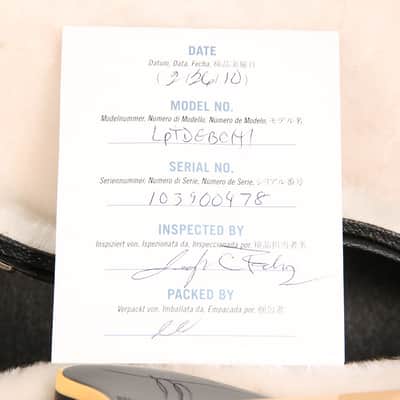 DATE
Datum, Data, Fecha, 検品実施日
(2/26/10)
MODEL NO.
Modelnummer, Numero di Modello, Número de Modelo, モデル名
LPTDEBCH1
SERIAL NO.
Seriennummer, Numero di Serie, Número de Serie, シリアル番号
103900478
INSPECTED BY
Inspiziert von, Ispezionata da, Inspeccionada por, 検品担当者名
PACKED BY
Verpackt von, Imballata da, Empacada por, 梱包者